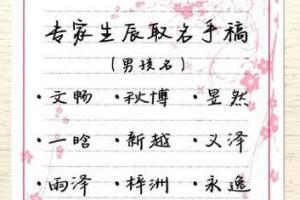 专家生辰取名手稿
(男孩名)
·文畅 ·秋博 ·昱然
·一晗 ·新越 ·义泽
·雨泽 ·梓洲 ·永逸